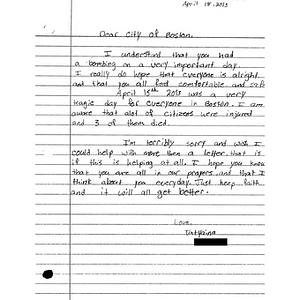 April 18, 2013
Dear City of Boston,
I understand that you had
a bombing on a very important day.
I really do hope that everyone is alright
and that you all feel comfortable and safe
April 15th 2013 was a very
tragic day for everyone in Boston. I am
aware that alot of citizens were injured
and 3 of them died.
I'm terribly sorry and wish I
could help with more then a letter, that is
if this is helping at all. I hope you know
that you are all in our prayers, and that I
think about you everyday. Just keep faith
and it will all get better.
Love,